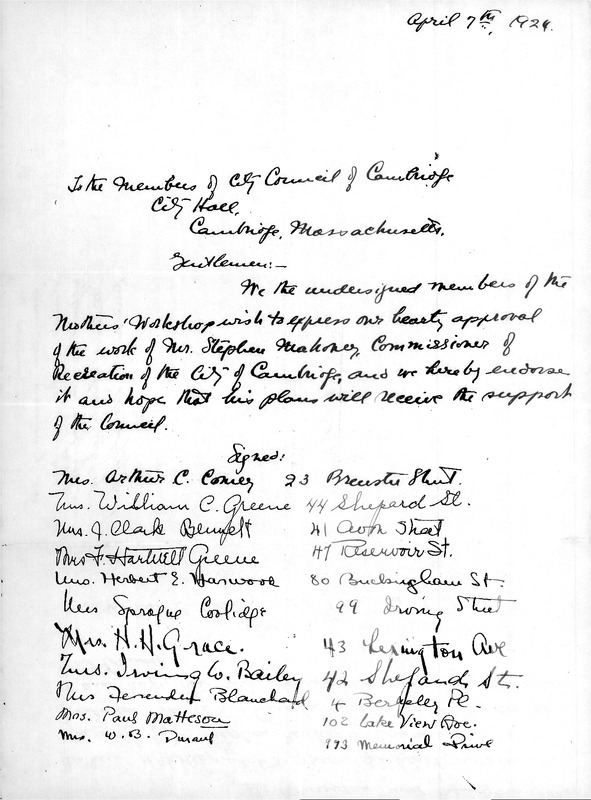 April 7th, 192
To the Members of City Council of Cambridge
City Hall,
Cambridge, Massachusetts.
Gentlemen:—
We the undersigned members of the
Mothers' Workshop wish to express our hearty approval
of the work of Mr. Stephen Mahoney Commissioner of
Recreation of the City of Cambridge, and we hereby endorse
it and hope that his plans will receive the support
of the Council.
Signed:
Mrs. Arthur C. Comey 23 Brewster Street.
Mrs. William C. Greene 44 Shepard St.
Mrs. J. Clark Bennett 41 Avon Street
Mrs F. Hartwell Greene 47 Reservoir St.
Mrs. Herbert E. Harwood 80 Buckingham St.
Mrs Sprague Coolidge 99 Irving Street
Mrs. H. H. Grace. 43 Lexington Ave
Mrs. Irving W. Bailey 42 Shepard St.
Mrs Fessenden Blanchard 4 Berkeley Pl.
Mrs. Paul Matteson 102 Lake View Ave.
Mrs. W. B. Durant 993 Memorial Drive